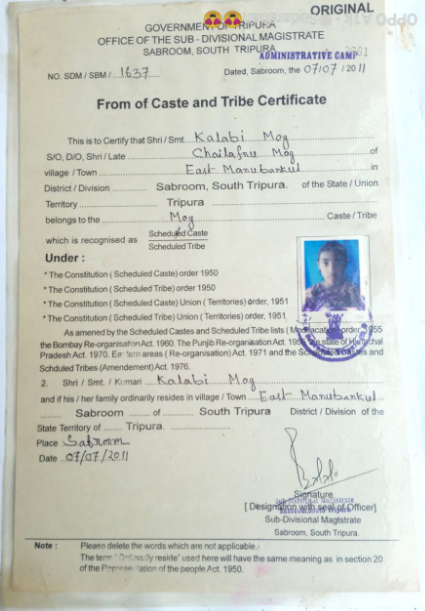 ORIGINAL
GOVERNMENT OF TRIPURA
OFFICE OF THE SUB - DIVISIONAL MAGISTRATE
SABROOM, SOUTH TRIPURA
ADMINISTRATIVE CAMP
NO. SDM / SBM / 1637 Dated, Sabroom, the 07/07 / 2011
From of Caste and Tribe Certificate
This is to Certify that Shri / Smt. Kalabi Mog
S/O, D/O, Shri / Late Chailafru Mog of
village / Town East Manubankul in
District / Division Sabroom, South Tripura. of the State / Union
Territory Tripura
belongs to the Mog Caste / Tribe
which is recognised as Scheduled Caste
Scheduled Tribe
Under :
* The Constitution ( Scheduled Caste) order 1950
* The Constitution ( Scheduled Tribe) order 1950
* The Constitution ( Scheduled Caste) Union ( Territories) order, 1951
* The Constitution ( Scheduled Tribe) Union ( Territories) order, 1951
As amened by the Scheduled Castes and Scheduled Tribe lists ( Modification order, 1955
the Bombay Re-organisation Act. 1960. The Punjib Re-organisation Act. 1966, the state of Himachal
Pradesh Act. 1970. Eastern areas ( Re-organisation) Act. 1971 and the Scheduled Castes and
Schduled Tribes (Amendement) Act. 1976.
2. Shri / Smt. / Kumari Kalabi Mog
and if his / her family ordinarily resides in village / Town East Manubankul
Sabroom of South Tripura District / Division of the
State Territory of Tripura.
Place Sabroom
Date 07/07/2011
Signature
[ Designation with seal of Officer]
Sub-Divisional Magistrate
Sabroom, South Tripura.
Note : Please delete the words which are not applicable.
The term "Ordinarily reside" used here will have the same meaning as in section 20
of the Representation of the people Act. 1950.